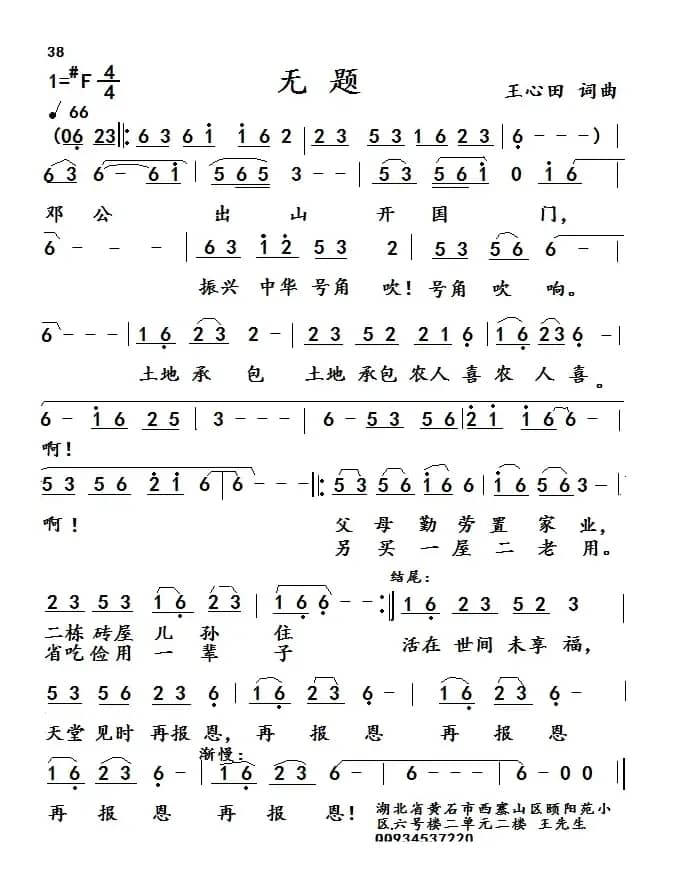 38
1=#F 4/4
无 题
王心田 词曲
66
(06 23 6 3 6 1 1 6 2 2 3 5 3 1 6 2 3 6 - - -)
6 3 6 - 6 1 5 6 5 3 - - 5 3 5 6 1 0 1 6
邓 公 出 山 开 国 门,
6 - - 6 3 1 2 5 3 2 5 3 5 6 6
振兴 中华 号角 吹! 号角 吹 响。
6 - - 1 6 2 3 2 - 2 3 5 2 2 1 6 1 6 2 3 6 -
土地 承 包 土地 承包 农人 喜 农 人 喜。
6 - 1 6 2 5 3 - - - 6 - - 6 5 3 5 6 2 1 1 6 6 -
啊!
5 3 5 6 2 1 6 6 - - - 5 3 5 6 1 6 6 1 6 5 6 3 -
啊! 父 母 勤 劳 置 家 业,
另 买 一 屋 二 老 用。
结尾:
2 3 5 3 1 6 2 3 1 6 6 - - 1 6 2 3 5 2 3
二栋 砖屋 儿 孙 住 活在 世间 未享 福,
省吃 俭用 一 辈 子
5 3 5 6 2 3 6 1 6 2 3 6 - 1 6 2 3 6 -
天堂 见时 再报 恩, 再 报 恩 再 报 恩
渐慢:
1 6 2 3 6 - 1 6 2 3 6 - 6 - - - 6 - 0 0
再 报 恩 再 报 恩!
湖北省黄石市西塞山区颐阳苑小
区六号楼二单元二楼 王先生
00934537220